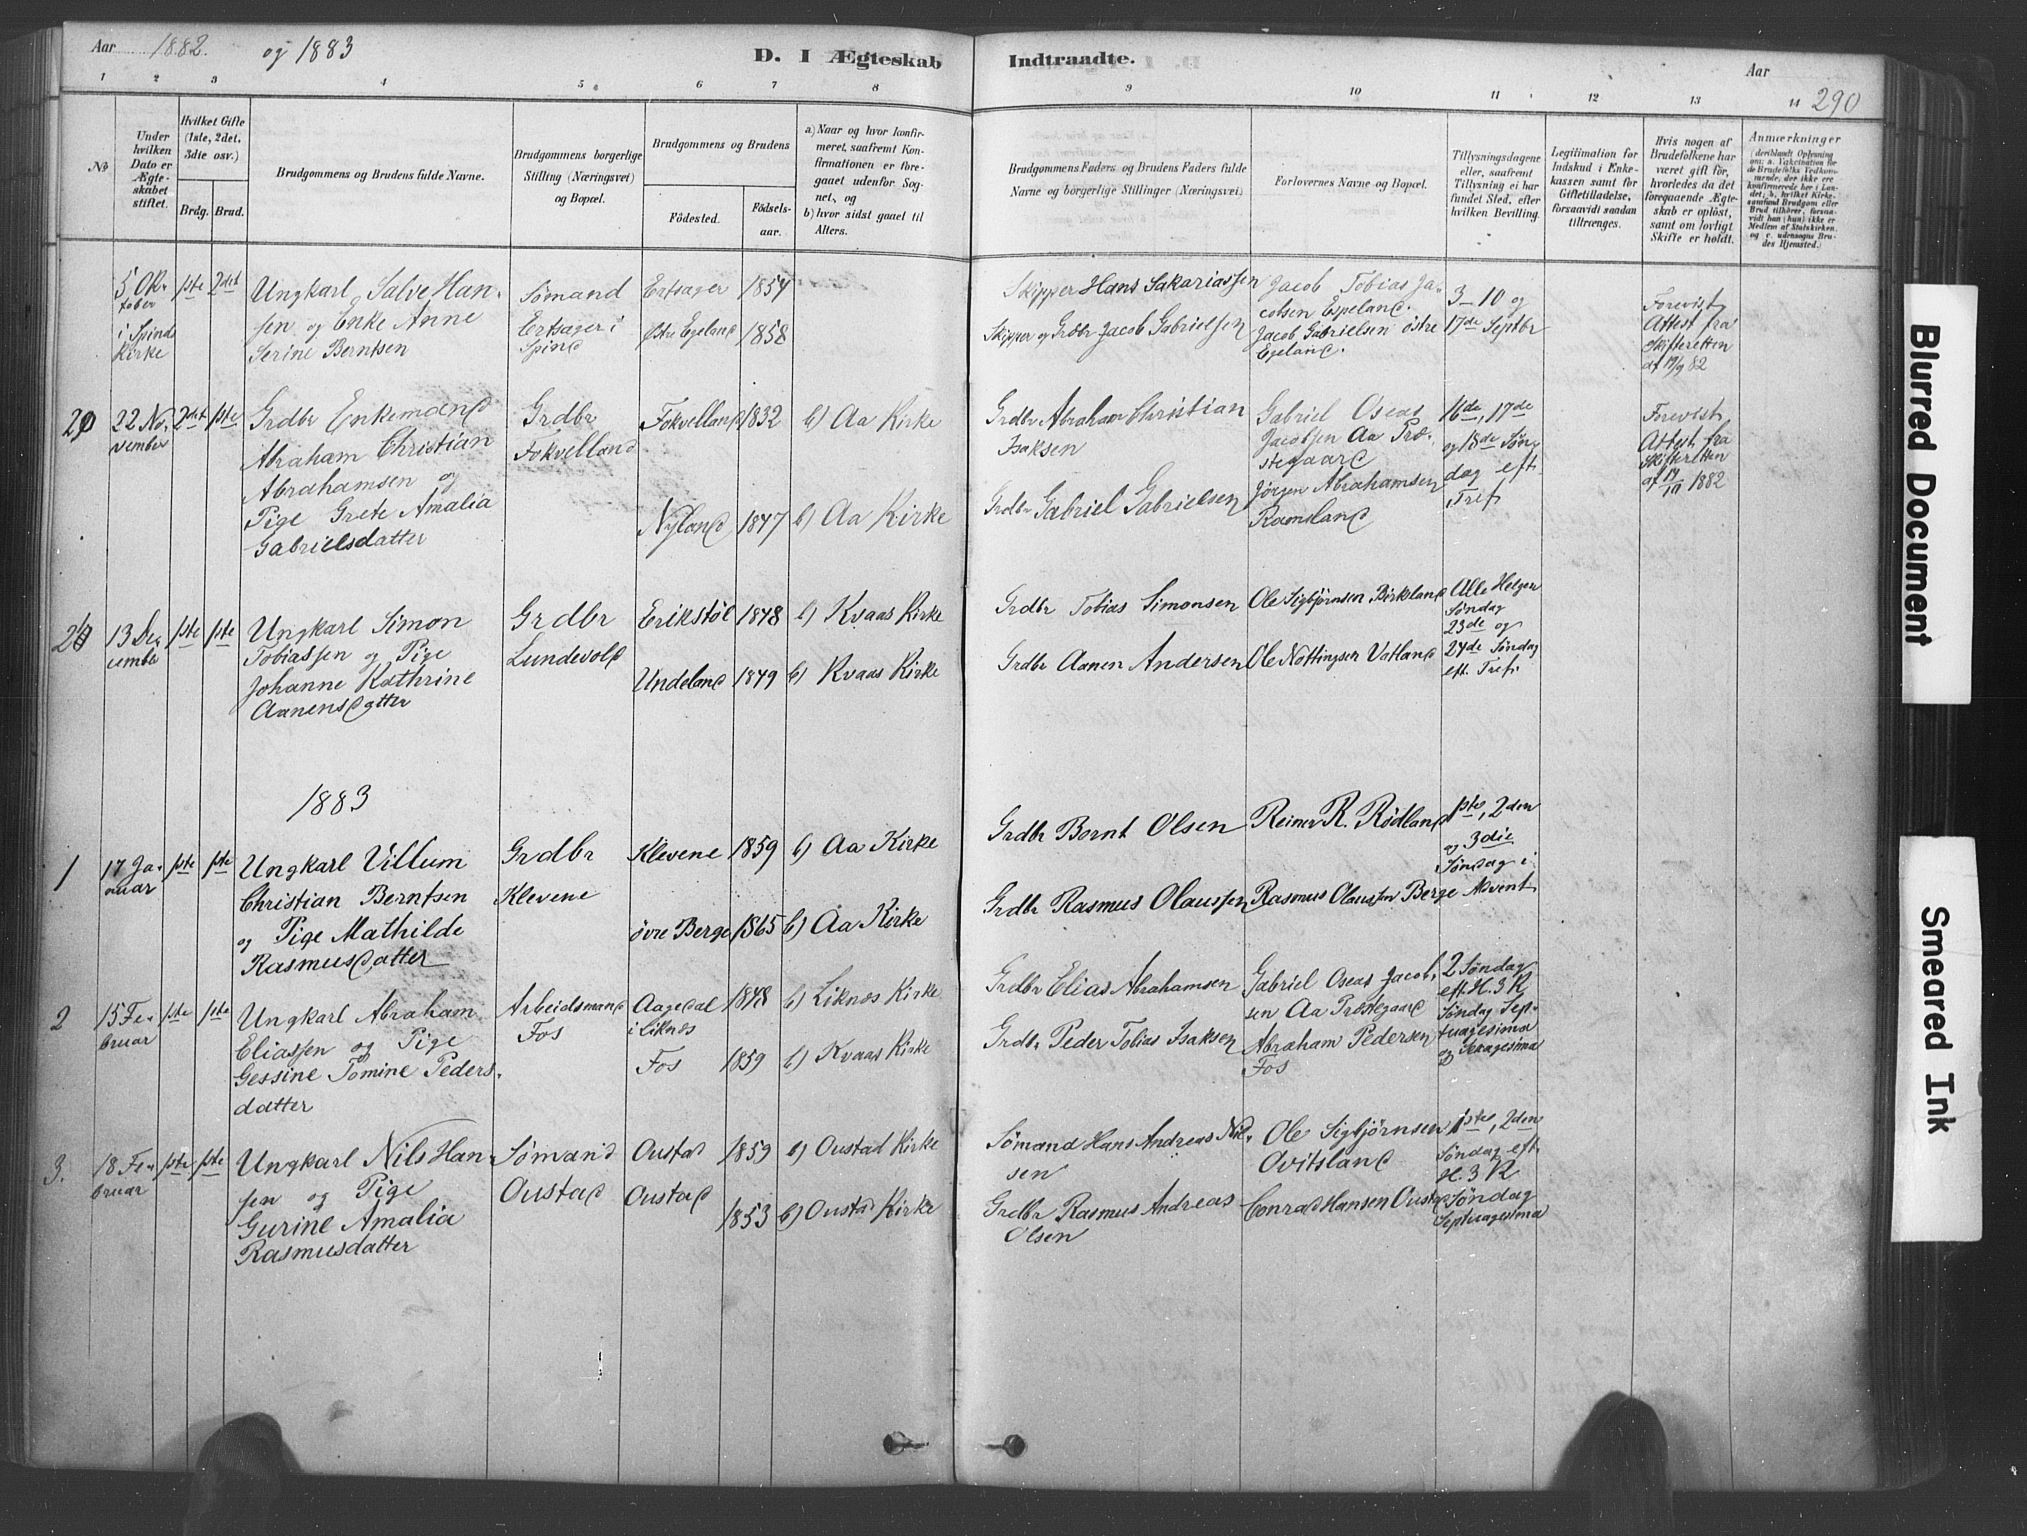 Aar 1882. og 1883
D. I Ægteskab Indtraadte.
Aar
290
1 2 3 4 5 6 7 8 9 10 11 12 13 14
No
Under hvilken Dato er Ægteskabet stiftet.
Hvilket Gifte (1ste, 2det, 3die osv.)
Brdg. Brud.
Brudgommens og Brudens fulde Navne.
Brudgommens borgerlige Stilling (Næringsvei) og Bopæl.
Brudgommens og Brudens
Fødested.
Fødselsaar.
a) Naar og hvor konfirmeret, saafremt Konfirmationen er foregaaet udenfor Sognet, og
b) hvor sidst gaaet til Alters.
Brudgommens Faders og Brudens Faders fulde Navne og borgerlige Stillinger (Næringsvei)
Forlovernes Navne og Bopæl.
Tillysningsdagene eller, saafremt Tillysning ei har fundet Sted, efter hvilken Bevilling.
Legitimation for Indskud i Enkekassen samt for Giftetilladelse, forsaavidt saadan tiltrænges.
Hvis nogen af Brudefolkene har været gift før, hvorledes da det foregaaende Ægteskab er opløst, samt om lovligt Skifte er holdt.
Anmærkninger
5 Oktober i Spind Kirke
1ste 2det
Ungkarl Salve Hansen og Enke Anne Serine Berntsen
Sømand Ertsager i Spind
Ertsager 1854
Østre Egeland 1858
Skipper Hans Sakariassen
Skipper og Grdbr Jacob Gabrielsen
Jacob Tobias Jacobsen Espeland.
Jacob Gabrielsen østre Egeland.
3 – 10 og 17de Septbr
Forevist Attest fra Skifteretten af 19/9 82
22 November
2det 1ste
Grdbr Enkemand Abraham Christian Abrahamsen og Pige Grete Amalia Gabrielsdatter
Grdbr Fokvelland
Fokvelland 1832 b) Aa Kirke
Nyland 1847 b) Aa Kirke
Grdbr Abraham Christian Isaksen
Grdbr Gabriel Gabrielsen
Gabriel Oseas Jacobsen Aa Præstegaard
Jørgen Abrahamsen Ramsland
16de, 17de og 18de Søndag eft. Tref.
Forevist Attest fra Skifteretten af 17/10 1882
13 December
1ste 1ste
Ungkarl Simon Tobiassen og Pige Johanne Kathrine Aanensdatter
Grdbr Lundevold
Erikstøl 1848 b) Kvaas Kirke
Undeland 1849 b) Kvaas Kirke
Grdbr Tobias Simonsen
Grdbr Aanen Andersen
Ole Sigbjørnsen Birkland
Ole Nottingsen Vatland
Alle Helgen Søndag 23de og 24de Søndag eft. Tref.
1883
1 17 Januar 1ste 1ste
Ungkarl Villum Christian Berntsen og Pige Mathilde Rasmusdatter
Grdbr Klevene
Klevene 1859 b) Aa Kirke
øvre Berge 1865 b) Aa Kirke
Grdbr Bernt Olsen
Grdbr Rasmus Olaussen
Reiner R. Rødland
Rasmus Olaussen Berge
1ste, 2den og 3die Søndag i Advent
2 15 Februar 1ste 1ste
Ungkarl Abraham Eliassen og Pige Gessine Tomine Pedersdatter
Arbeidsmand Fos
Aagedal i Liknes 1848 b) Liknes Kirke
Fos 1859 b) Kvaas Kirke
Grdbr Elias Abrahamsen
Grdbr Peder Tobias Isaksen
Gabriel Oseas Jacobsen Aa Præstegaard
Abraham Pedersen Fos
2 Søndag eft. H. 3 K Søndag Septuagesima og Sexagesima
3. 18 Februar 1ste 1ste
Ungkarl Nils Hansen og Pige Gurine Amalia Rasmusdatter
Sømand Oustad
Oustad 1859 b) Oustad Kirke
Oustad 1853 b) Oustad Kirke
Sømand Hans Andreas Nilsen
Grdbr Rasmus Andreas Olsen
Ole Sigbjørnsen Ovitsland
Conrad Hansen Oustad
1ste, 2den Søndag eft. H. 3 K Søndag Septuagesima
Blurred Document
Smeared Ink